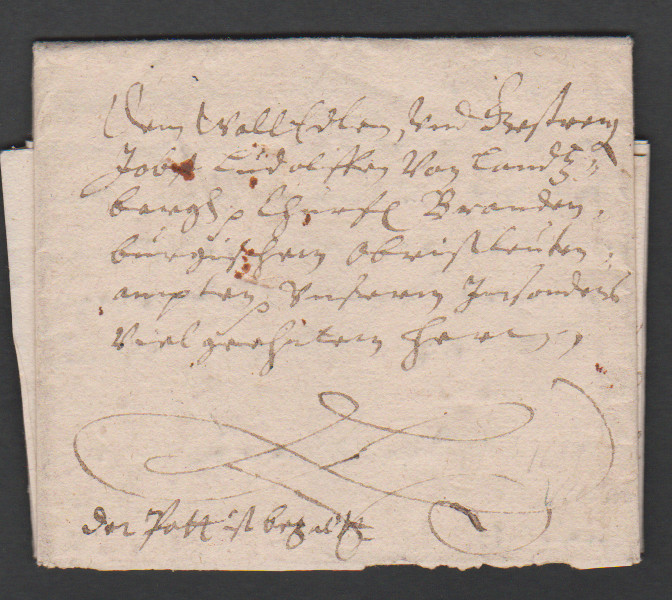 Dem WollEdlen, Und Gestreng
Jobst Ludolffen Von Landts=
bergh, Churfl Branden,
burgischem Obristleuten,
ampten, Unserm Insonders
Vielgeehrtem Herrn,
der Post ist bezalt